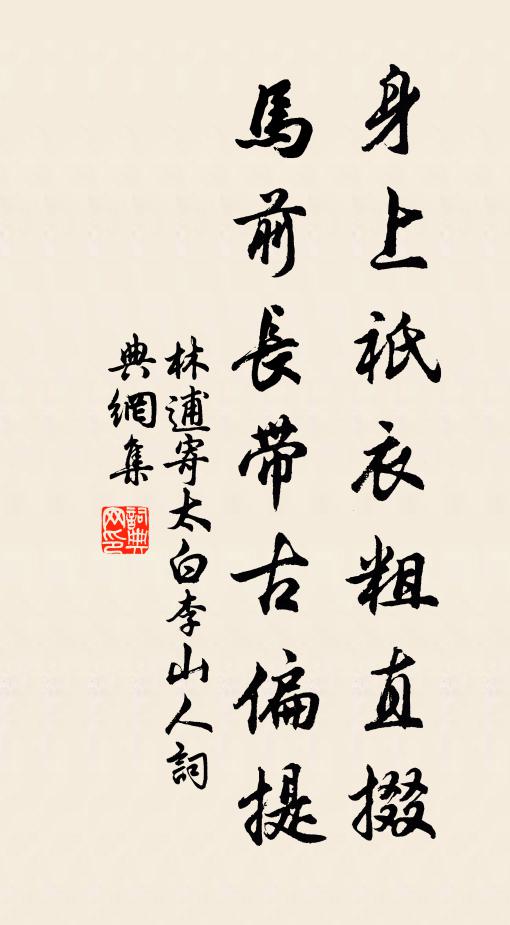 身上衹衣粗直掇
馬前長帶古偏提
林逋寄太白李山人詞
典網集
詞典网印